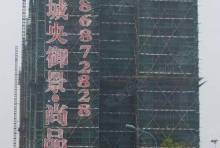 城央御景·尚品
86872828